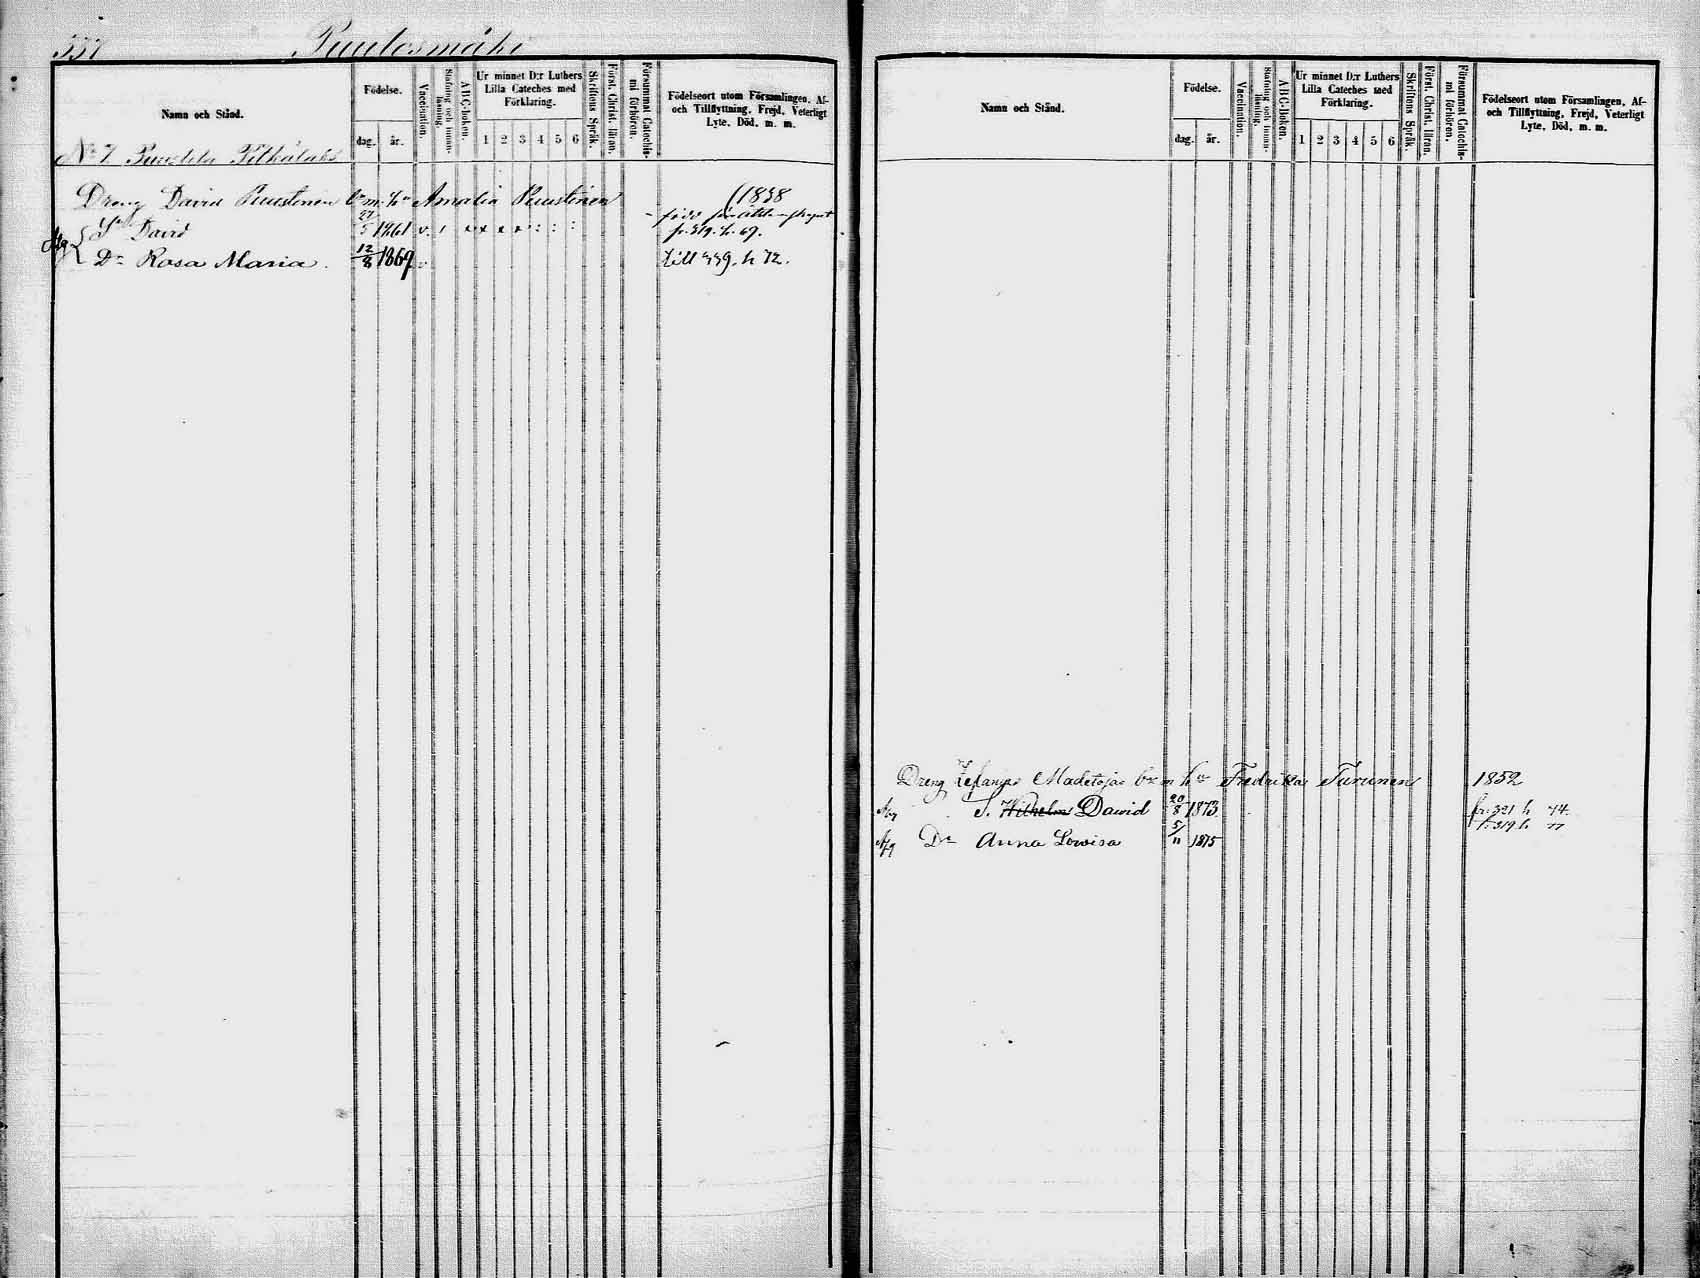 337 Puutosmäki
Namn och Stånd.
Födelse.
dag. år.
Vaccination.
Stafning och innanläsning.
A B C-boken.
Ur minnet D:r Luthers Lilla Cateches med Förklaring.
1 2 3 4 5 6
Skriftens Språk.
Först. Christ. läran.
Försummat Catechismi förhören.
Födelseort utom Församlingen, Af- och Tillflyttning, Frejd, Veterligt Lyte, Död, m. m.
N:o 7
Dreng David Puustinen Amalia Puustinen (1838
Sn David 27/5 1861 v. fr. 319. h. 69.
Dr Rosa Maria. 12/8 1869 v till 339. h 72.
Namn och Stånd.
Födelse.
dag. år.
Vaccination.
Stafning och innanläsning.
A B C-boken.
Ur minnet D:r Luthers Lilla Cateches med Förklaring.
1 2 3 4 5 6
Skriftens Språk.
Först. Christ. läran.
Försummat Catechismi förhören.
Födelseort utom Församlingen, Af- och Tillflyttning, Frejd, Veterligt Lyte, Död, m. m.
Dreng Zefanjas Madetoja Fredrika Turunen 1852
Afg S. Wilhelm Dawid 20/8 1873 fr. 321 h 74.
fr. 319 h. 77
Afg Dr Anna Lowisa 5/11 1875